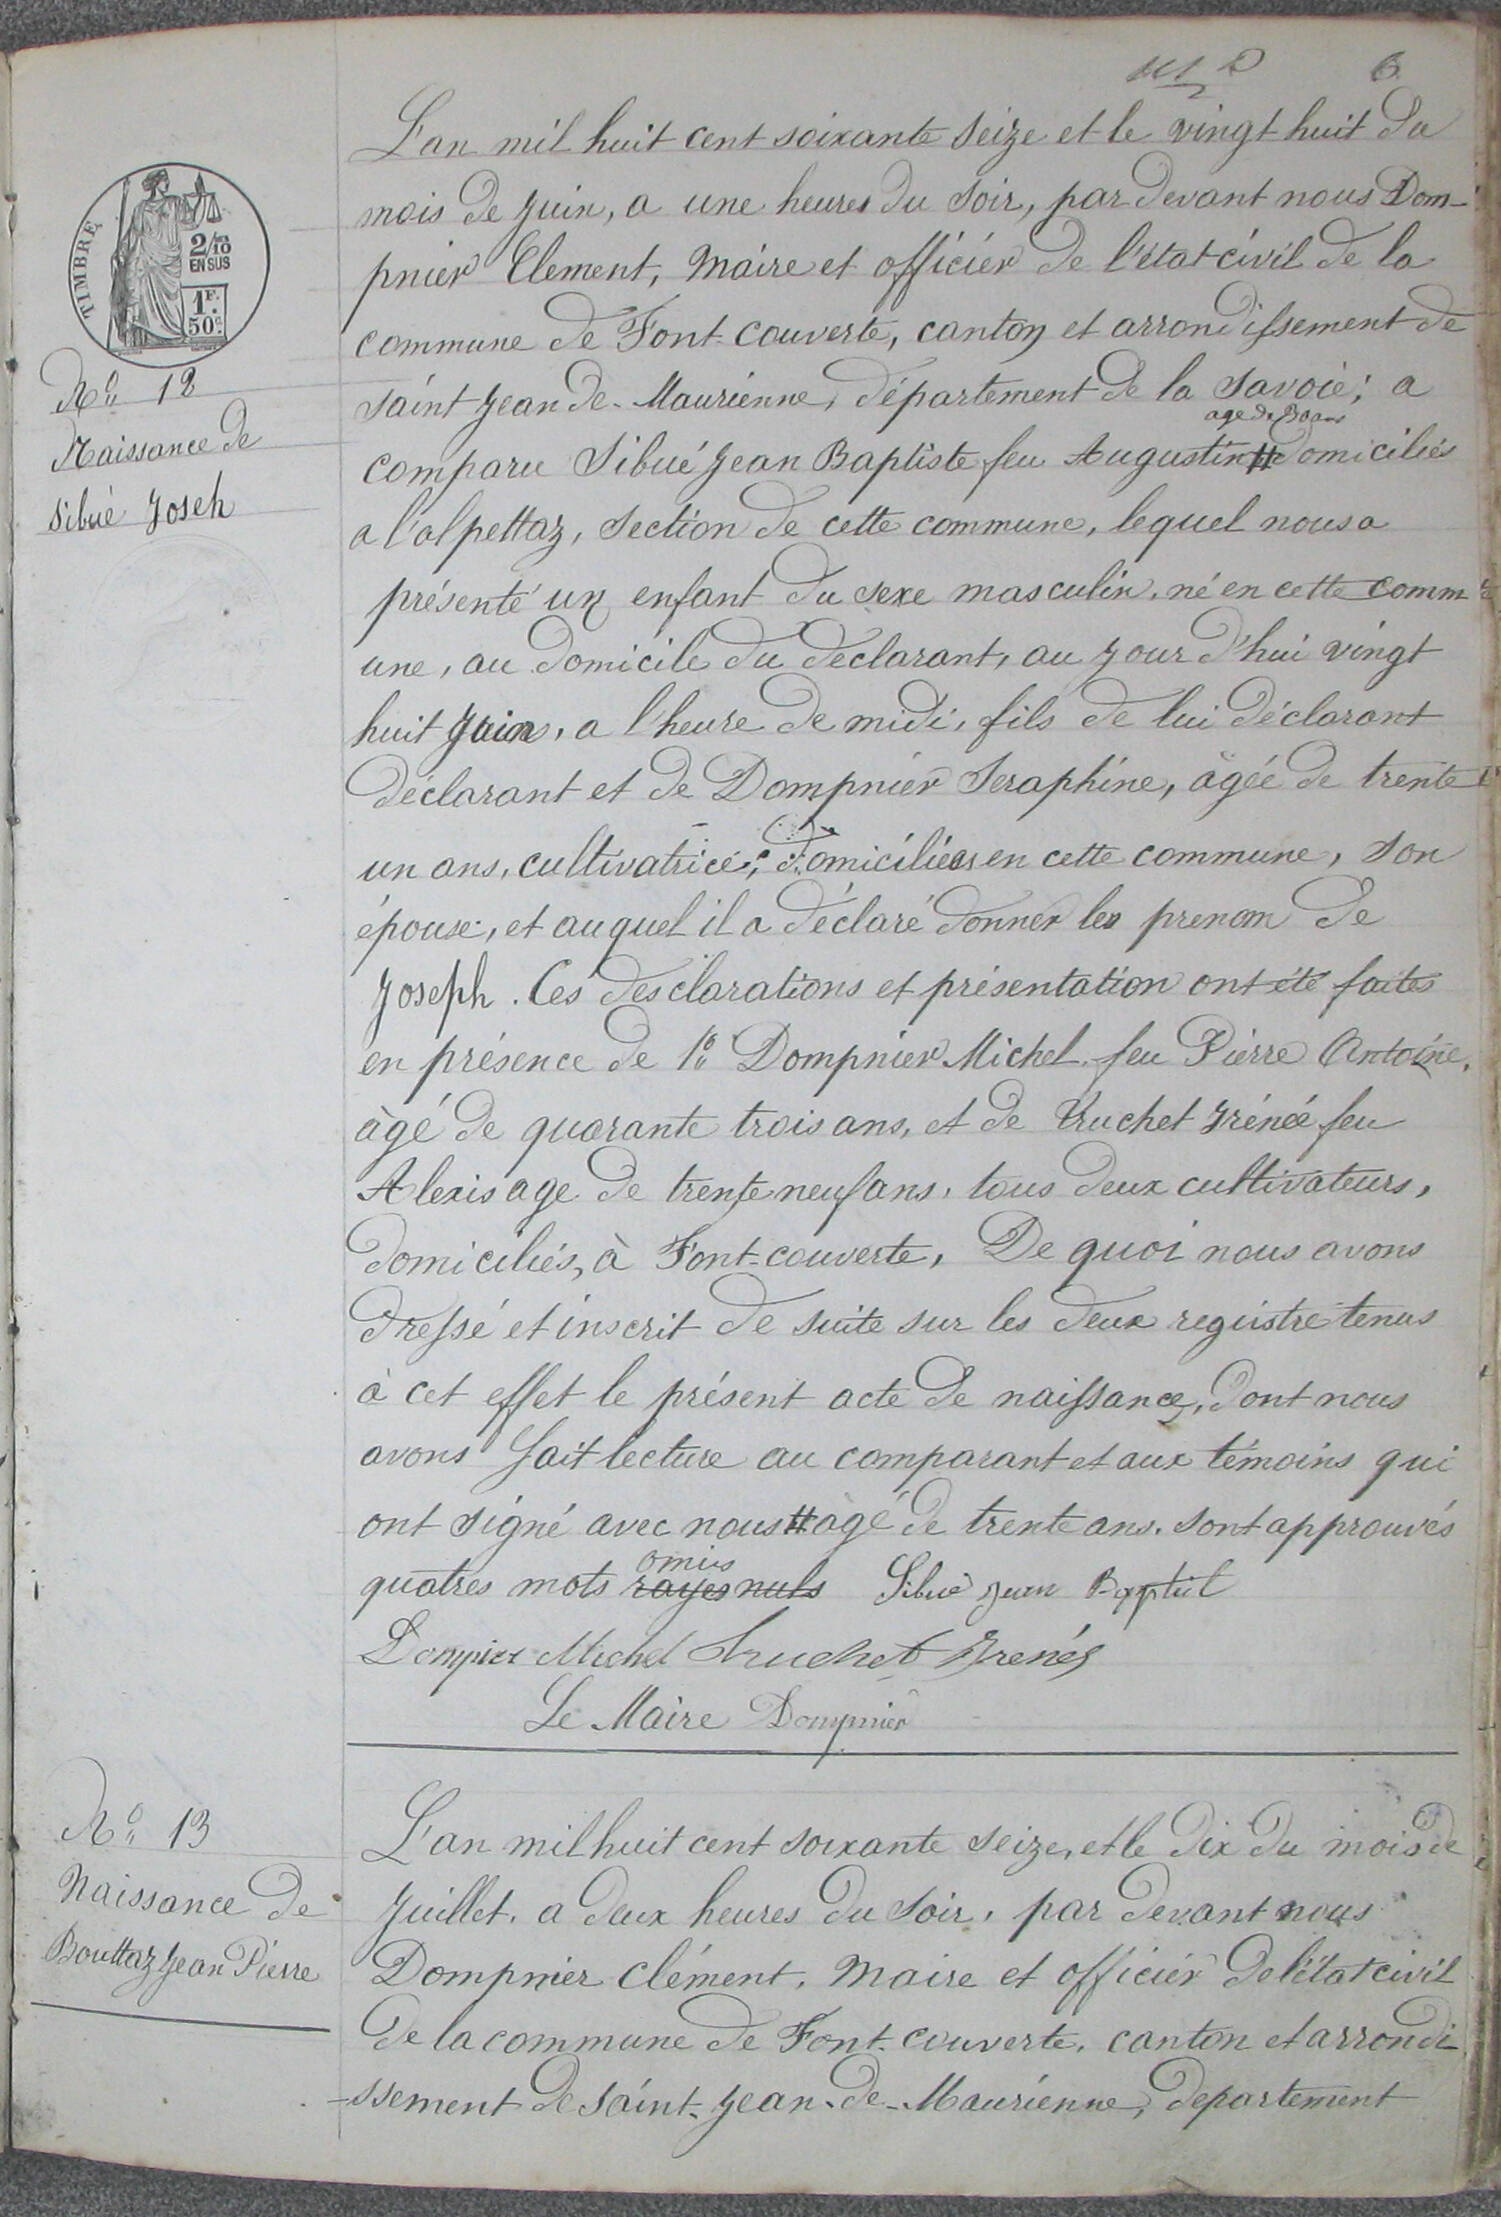 6
L'an mil huit cent soixante seize et le vingt huit du
mois de Juin, a une heures du soir, par devant nous Dom-
pnier Clement, Maire et officier de l'état civil de la
commune de Font-couverte, canton et arrondissement de
saint Jean de-Maurienne, département de la Savoie; a
age de 30 ans
comparu Sibué Jean Baptiste feu Augustin # domiciliés
a l'alpettaz, section de cette commune, lequel nous a
présenté un enfant du sexe masculin, né en cette comm-
une, au domicile du declarant, au jour d'hui vingt
huit Juin, a l'heure de midi, fils de lui déclarant
déclarant et de Dompnier Seraphine, âgée de trente
un ans, cultivatrice, domiciliées en cette commune, son
épouse, et auquel il a déclaré donner les prenom de
Joseph. Ces desclarations et présentation ont été faites
en présence de 1° Dompnier Michel feu Pierre Antoine,
âgé de quarante trois ans, et de Truchet Irénée feu
Alexis age de trente neuf ans, tous deux cultivateurs,
domiciliés, à Font-couverte, De quoi nous avons
dressé et inscrit de suite sur les deux registre tenus
à cet effet le présent acte de naissance, dont nous
avons fait lecture au comparant et aux témoins qui
ont signé avec nous # agé de trente ans. sont approuvés
omis
quatres mots rayes nuls Sibué Jean Baptist
Dompier Michel Truchet Irenés
Le Maire Dompnier
L'an mil huit cent soixante seize, et le dix du mois de
Juillet, a deux heures du soir, par devant nous
Dompnier clément, Maire et officier de l'état civil
de la commune de Font-couverte, canton et arrondi
-ssement de saint-Jean-de-Maurienne, departement
TIMBRE
2/10
EN SUS
1F.
50c.
No 12
Naissance de
Sibué Joseh
No 13
Naissance de
Bouttaz Jean Pierre